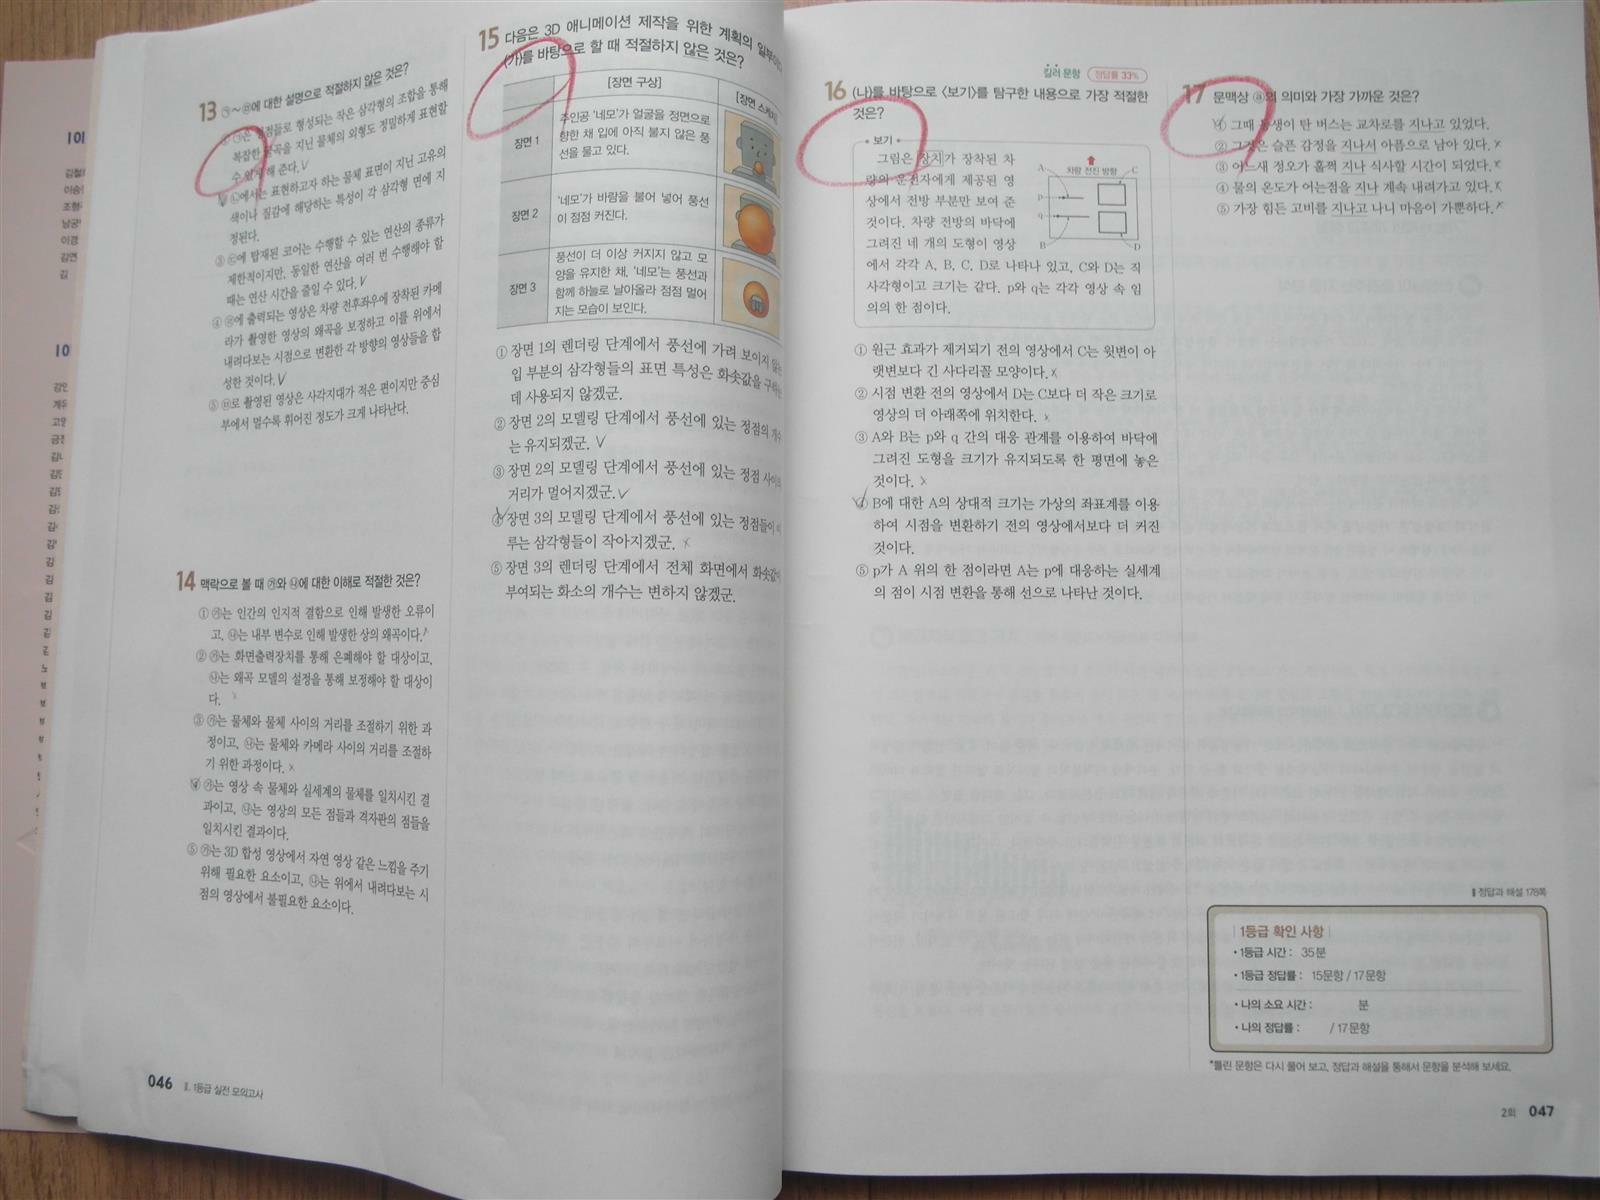 13 ㉠~㉥에 대한 설명으로 적절하지 않은 것은?
① ㉠은 정점들로 형성되는 작은 삼각형의 조합을 통해
복잡한 굴곡을 지닌 물체의 외형도 정밀하게 표현할
수 있게 해 준다.
② ㉡에서는 표현하고자 하는 물체 표면이 지닌 고유의
색이나 질감에 해당하는 특성이 각 삼각형 면에 지
정된다.
③ ㉢에 탑재된 코어는 수행할 수 있는 연산의 종류가
제한적이지만, 동일한 연산을 여러 번 수행해야 할
때는 연산 시간을 줄일 수 있다.
④ ㉣에 출력되는 영상은 차량 전후좌우에 장착된 카메
라가 촬영한 영상의 왜곡을 보정하고 이를 위에서
내려다보는 시점으로 변환한 각 방향의 영상들을 합
성한 것이다.
⑤ ㉥로 촬영된 영상은 사각지대가 적은 편이지만 중심
부에서 멀수록 휘어진 정도가 크게 나타난다.
14 맥락으로 볼 때 ㉮와 ㉯에 대한 이해로 적절한 것은?
① ㉮는 인간의 인지적 결함으로 인해 발생한 오류이
고, ㉯는 내부 변수로 인해 발생한 상의 왜곡이다.
② ㉮는 화면출력장치를 통해 은폐해야 할 대상이고,
㉯는 왜곡 모델의 설정을 통해 보정해야 할 대상이
다.
③ ㉮는 물체와 물체 사이의 거리를 조절하기 위한 과
정이고, ㉯는 물체와 카메라 사이의 거리를 조절하
기 위한 과정이다.
④ ㉮는 영상 속 물체와 실세계의 물체를 일치시킨 결
과이고, ㉯는 영상의 모든 점들과 격자판의 점들을
일치시킨 결과이다.
⑤ ㉮는 3D 합성 영상에서 자연 영상 같은 느낌을 주기
위해 필요한 요소이고, ㉯는 위에서 내려다보는 시
점의 영상에서 불필요한 요소이다.
046 Ⅱ. 1등급 실전 모의고사
15 다음은 3D 애니메이션 제작을 위한 계획의 일부이다.
(가)를 바탕으로 할 때 적절하지 않은 것은?
[장면 구상] [장면 스케치]
장면 1
주인공 '네모'가 얼굴을 정면으로
향한 채 입에 아직 불지 않은 풍
선을 물고 있다.
장면 2
'네모'가 바람을 불어 넣어 풍선
이 점점 커진다.
장면 3
풍선이 더 이상 커지지 않고 모
양을 유지한 채, '네모'는 풍선과
함께 하늘로 날아올라 점점 멀어
지는 모습이 보인다.
① 장면 1의 렌더링 단계에서 풍선에 가려 보이지 않는
입 부분의 삼각형들의 표면 특성은 화솟값을 구하는
데 사용되지 않겠군.
② 장면 2의 모델링 단계에서 풍선에 있는 정점의 개수
는 유지되겠군.
③ 장면 2의 모델링 단계에서 풍선에 있는 정점 사이의
거리가 멀어지겠군.
④ 장면 3의 모델링 단계에서 풍선에 있는 정점들이 이
루는 삼각형들이 작아지겠군.
⑤ 장면 3의 렌더링 단계에서 전체 화면에서 화솟값이
부여되는 화소의 개수는 변하지 않겠군.
킬러 문항 정답률 33%
16 (나)를 바탕으로 〈보기〉를 탐구한 내용으로 가장 적절한
것은?
• 보기 •
그림은 장치가 장착된 차
량의 운전자에게 제공된 영
상에서 전방 부분만 보여 준
것이다. 차량 전방의 바닥에
그려진 네 개의 도형이 영상
에서 각각 A, B, C, D로 나타나 있고, C와 D는 직
사각형이고 크기는 같다. p와 q는 각각 영상 속 임
의의 한 점이다.
차량 전진 방향
A C
p
q
B D
① 원근 효과가 제거되기 전의 영상에서 C는 윗변이 아
랫변보다 긴 사다리꼴 모양이다.
② 시점 변환 전의 영상에서 D는 C보다 더 작은 크기로
영상의 더 아래쪽에 위치한다.
③ A와 B는 p와 q 간의 대응 관계를 이용하여 바닥에
그려진 도형을 크기가 유지되도록 한 평면에 놓은
것이다.
④ B에 대한 A의 상대적 크기는 가상의 좌표계를 이용
하여 시점을 변환하기 전의 영상에서보다 더 커진
것이다.
⑤ p가 A 위의 한 점이라면 A는 p에 대응하는 실세계
의 점이 시점 변환을 통해 선으로 나타난 것이다.
17 문맥상 ⓐ의 의미와 가장 가까운 것은?
① 그때 동생이 탄 버스는 교차로를 지나고 있었다.
② 그것은 슬픈 감정을 지나서 아픔으로 남아 있다.
③ 어느새 정오가 훌쩍 지나 식사할 시간이 되었다.
④ 물의 온도가 어는점을 지나 계속 내려가고 있다.
⑤ 가장 힘든 고비를 지나고 나니 마음이 가뿐하다.
정답과 해설 178쪽
1등급 확인 사항
• 1등급 시간 : 35분
• 1등급 정답률 : 15문항 / 17문항
• 나의 소요 시간 : 분
• 나의 정답률 : / 17문항
*틀린 문항은 다시 풀어 보고, 정답과 해설을 통해서 문항을 분석해 보세요.
2회 047